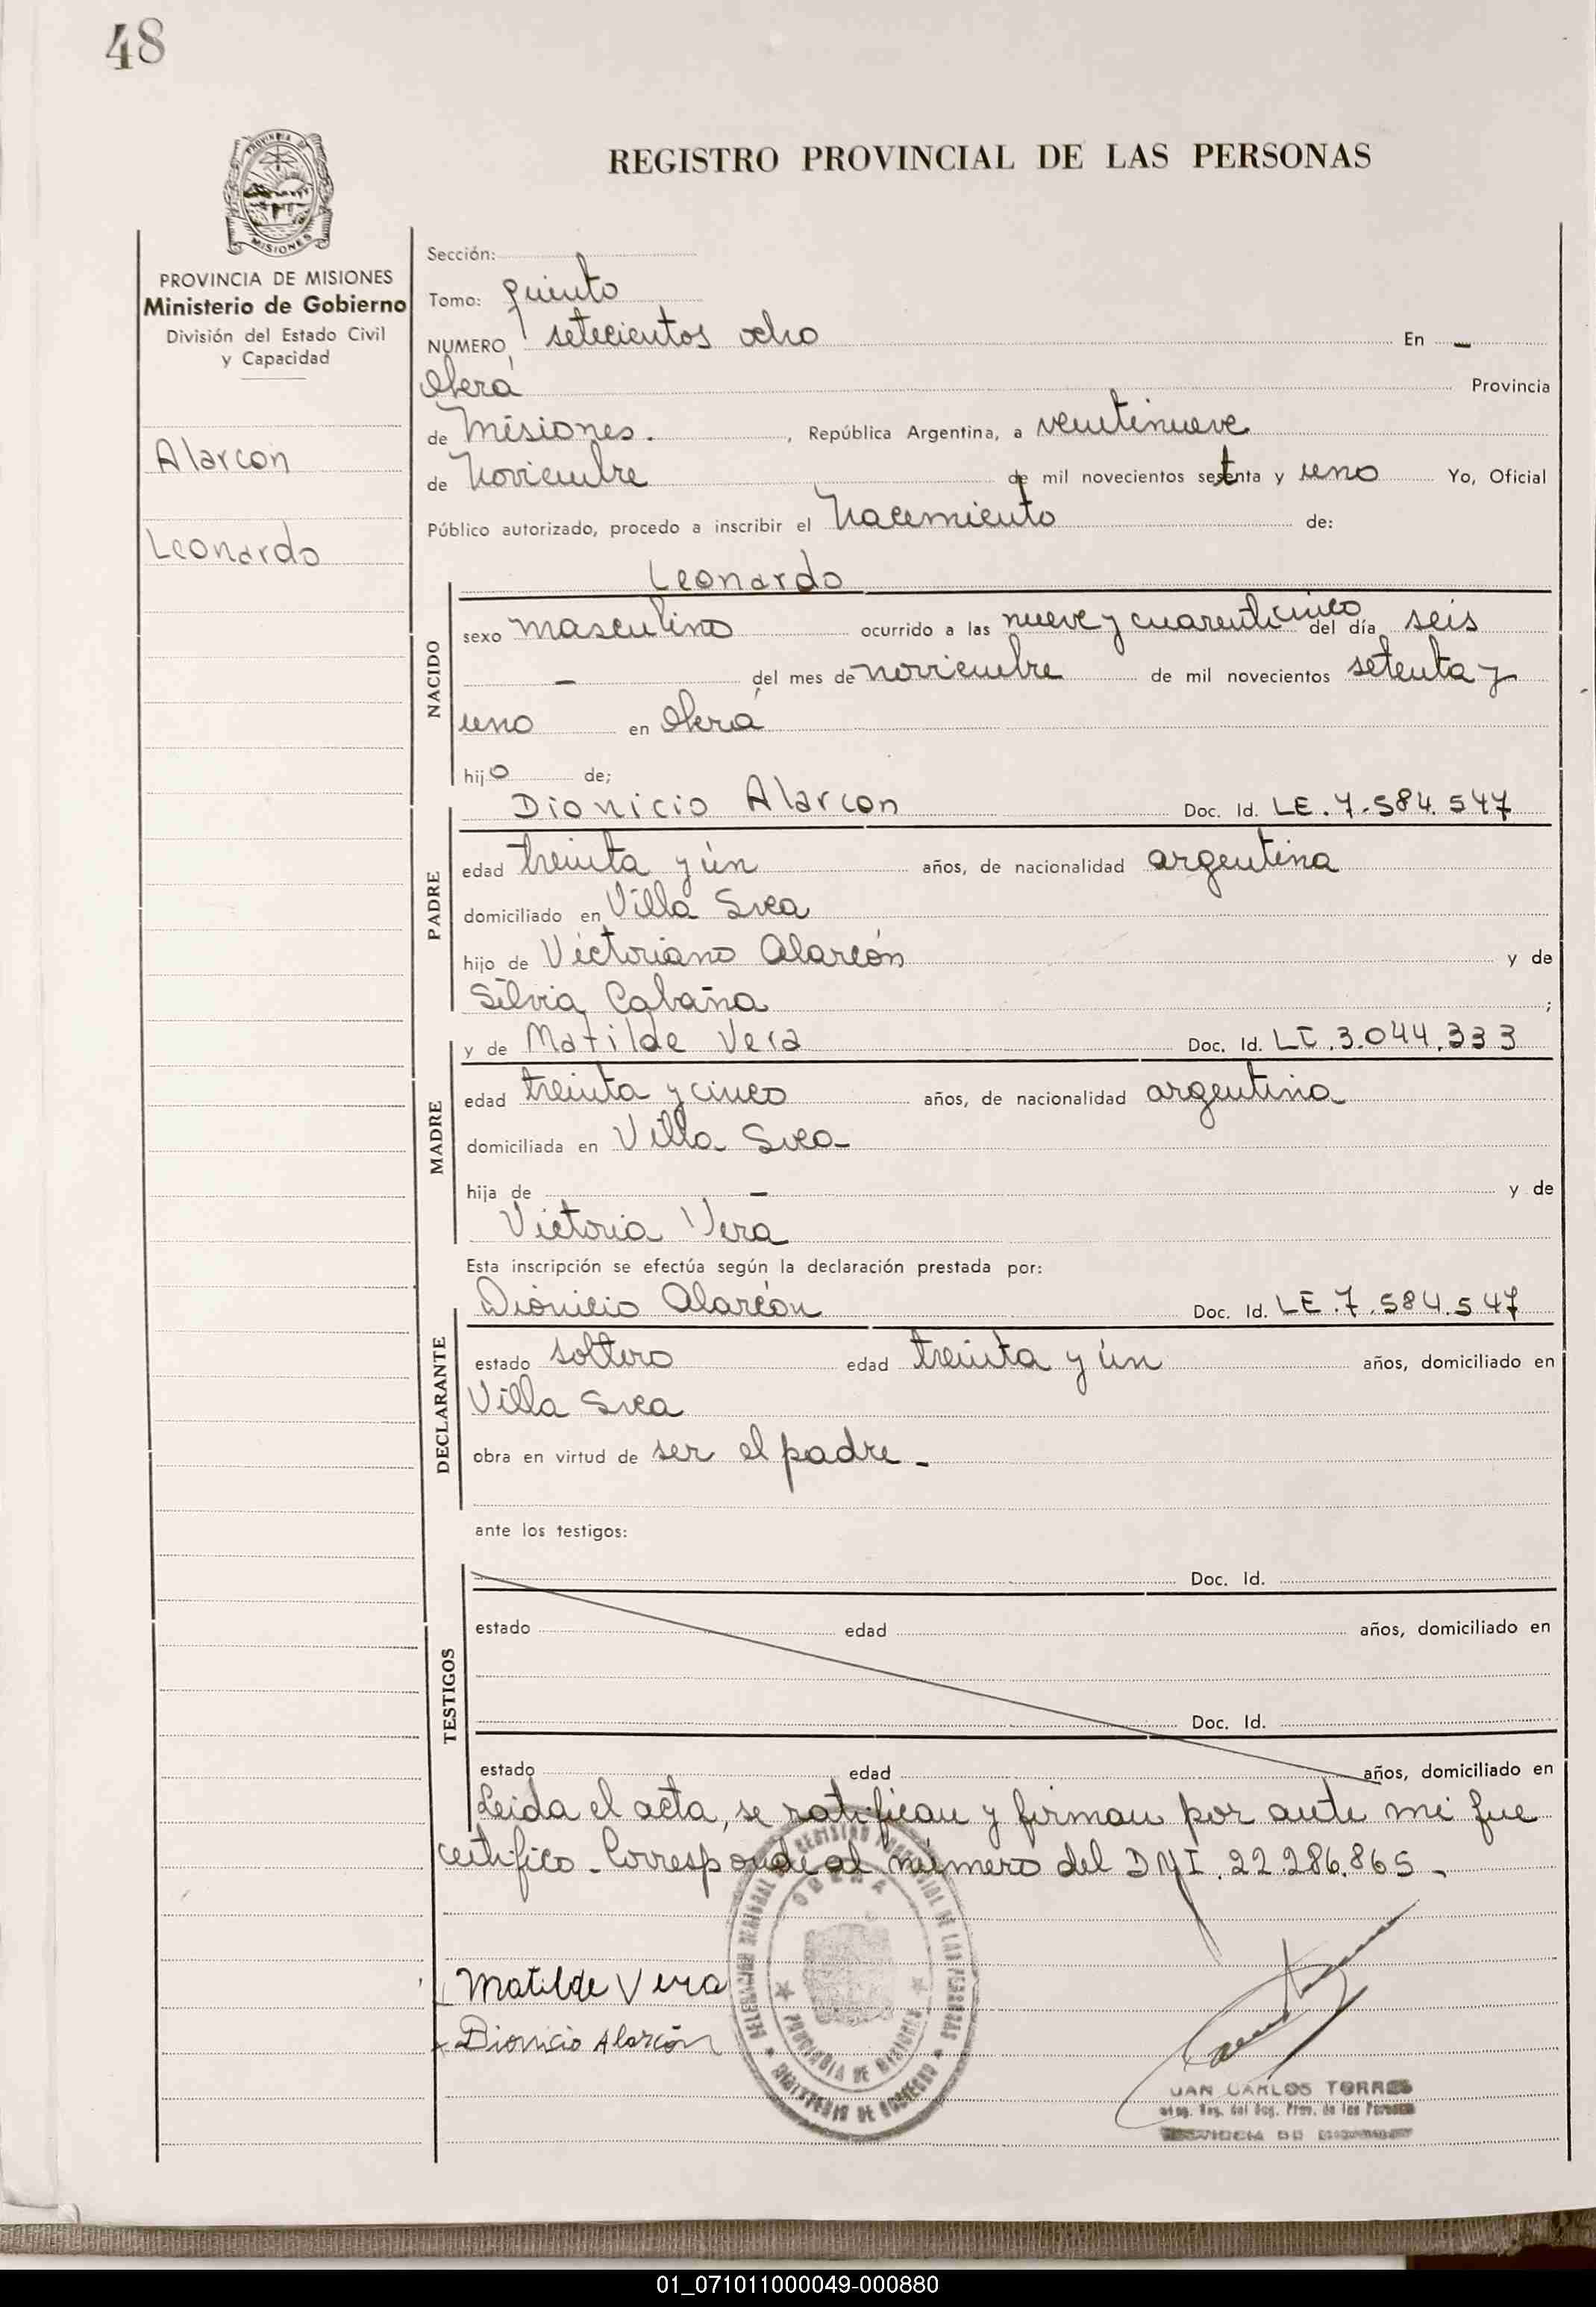 48
REGISTRO PROVINCIAL DE LAS PERSONAS
PROVINCIA DE MISIONES
Ministerio de Gobierno
División del Estado Civil
y Capacidad
Alarcon
Leonardo
Sección:
Tomo: quinto
NUMERO setecientos ocho En -
Oberá Provincia
de Misiones. , República Argentina, a veintinueve
de Noviembre de mil novecientos setenta y uno Yo, Oficial
Público autorizado, procedo a inscribir el Nacemiento de:
Leonardo
NACIDO
sexo masculino ocurrido a las nueve y cuarenticinco del día seis
- del mes de noviembre de mil novecientos setenta y
uno en Oberá
hijo de;
PADRE
Dionicio Alarcon Doc. Id. LE. 7.584.547
edad treinta y ún años, de nacionalidad argentina
domiciliado en Villa Svea
hijo de Victoriano Alarcón y de
Silvia Cabaña ;
MADRE
y de Matilde Vera Doc. Id. LC.3.044.333
edad treinta y cinco años, de nacionalidad argentina
domiciliada en Villa Svea
hija de - y de
Victoria Vera
Esta inscripción se efectúa según la declaración prestada por:
DECLARANTE
Dionicio Alarcón Doc. Id. LE.7.584.547
estado soltero edad treinta y ún años, domiciliado en
Villa Svea
obra en virtud de ser el padre -
ante los testigos:
TESTIGOS
Doc. Id.
estado edad años, domiciliado en
Doc. Id.
estado edad años, domiciliado en
Leida el acta, se ratifican y firman por ante mi que
certifico - Corresponde al número del DNI. 22.286.865 -
Matilde Vera
Dionicio Alarcón
OBERA
PROVINCIA DE MISIONES
MINISTERIO DE GOBIERNO
JUAN CARLOS TORRES
01_071011000049-000880